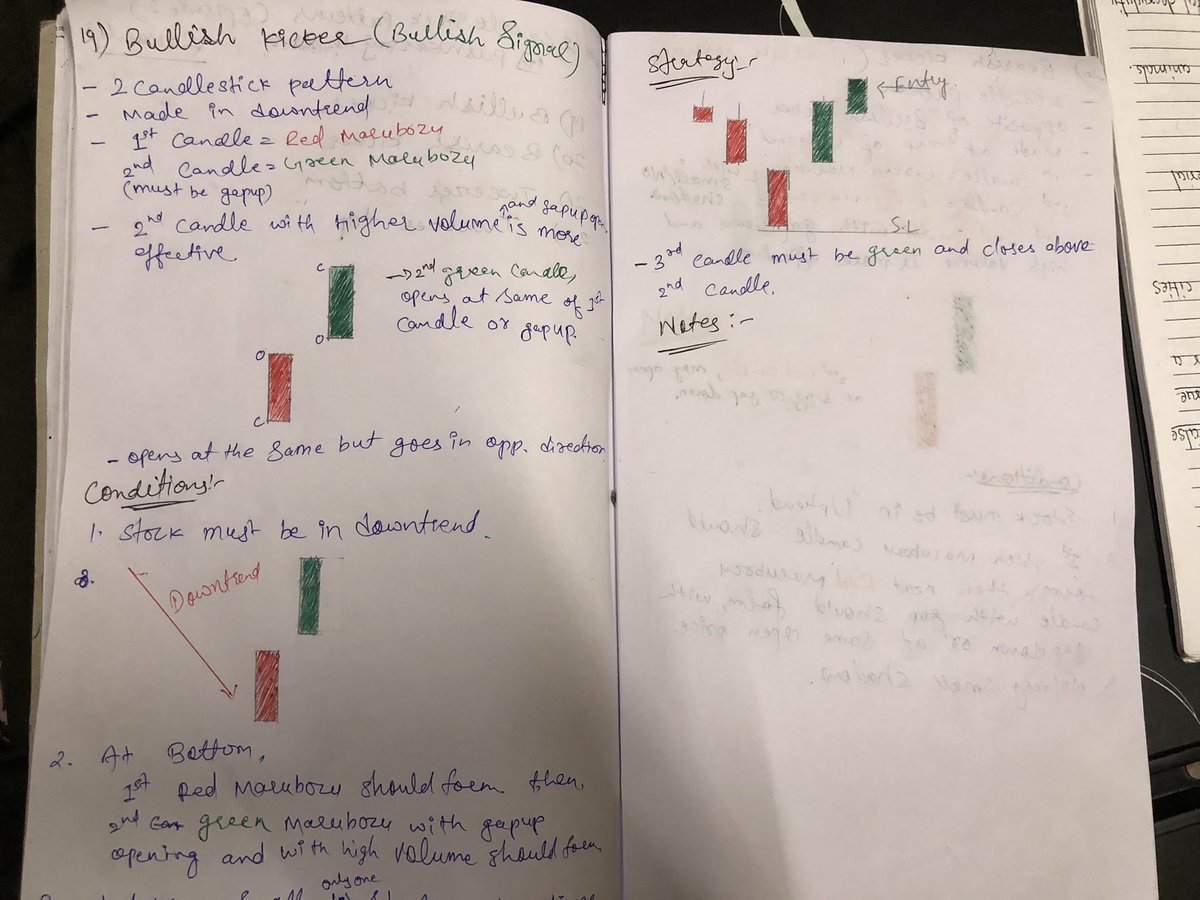 19) Bullish Kicker (Bullish Signal)
- 2 Candlestick pattern
- Made in downtrend
- 1st Candle = Red Marubozu
2nd Candle = Green Marubozu
(must be gapup)
- 2nd candle with Higher volume and gapup open is more
effective.
C
→ 2nd green candle,
opens at same of 1st
candle or gapup.
O
O
C
- opens at the same but goes in opp. direction
Conditions:-
1. Stock must be in downtrend.
Downtrend
2. At Bottom,
1st Red Marubozu should form then
2nd green Marubozu with gapup
opening and with high volume should form.
only one
Strategy:-
← Entry
S.L
- 3rd candle must be green and closes above
2nd candle.
Notes:-
animals.
cities